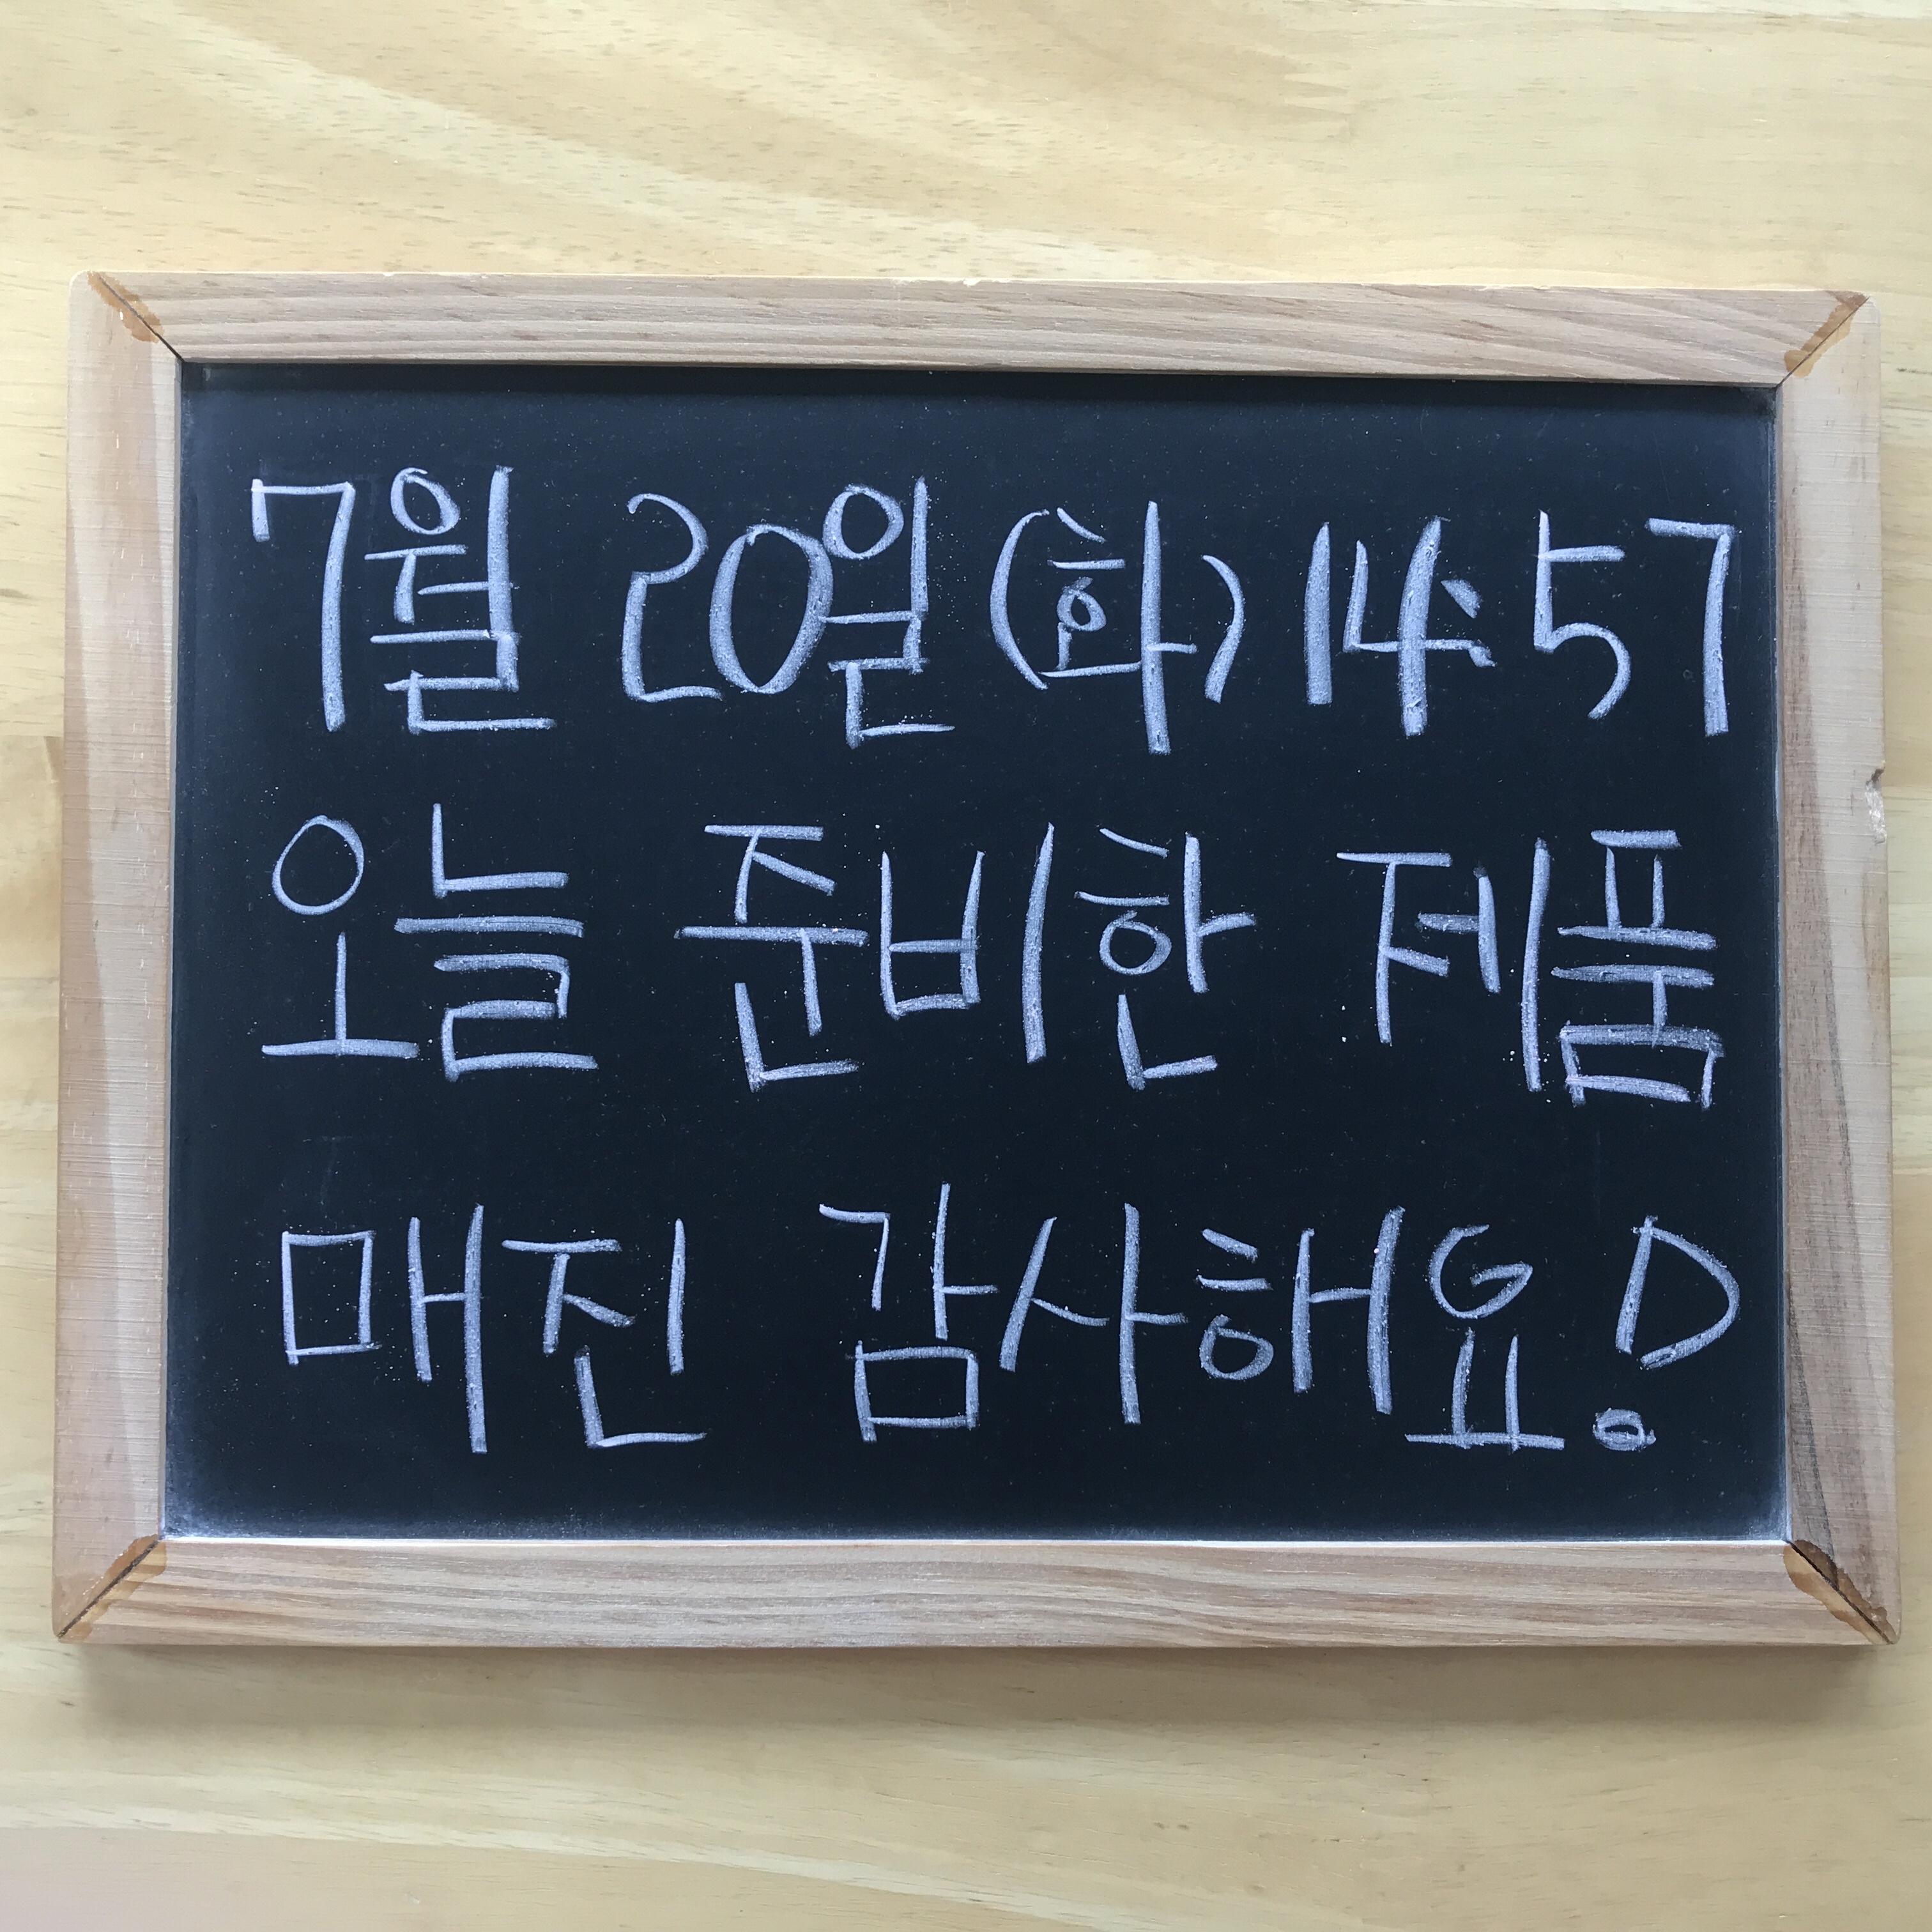 7월 20일(화) 14:57
오늘 준비한 제품
매진 감사해요!